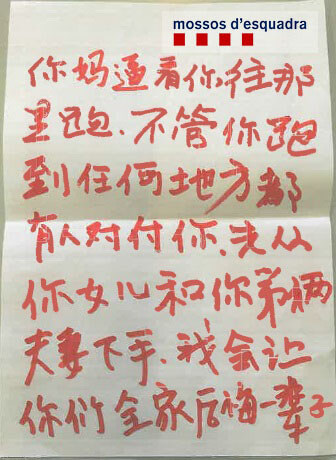 mossos d'esquadra
你妈逼看你往那
里跑、不管你跑
到任何地方都
有人对付你、先从
你女儿和你弟俩
夫妻下手、我会让
你们全家后悔一辈子